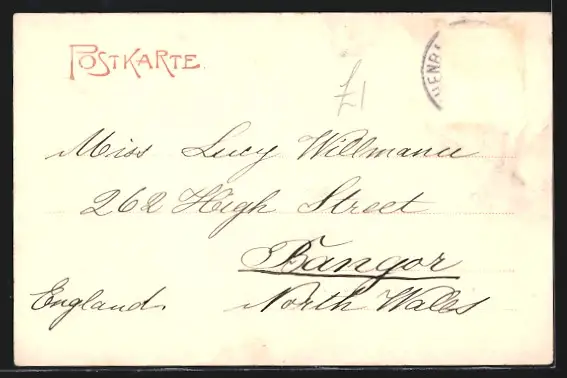 POSTKARTE.
£1
Miss Lucy Willmann
262 High Street
Bangor
England. North Wales